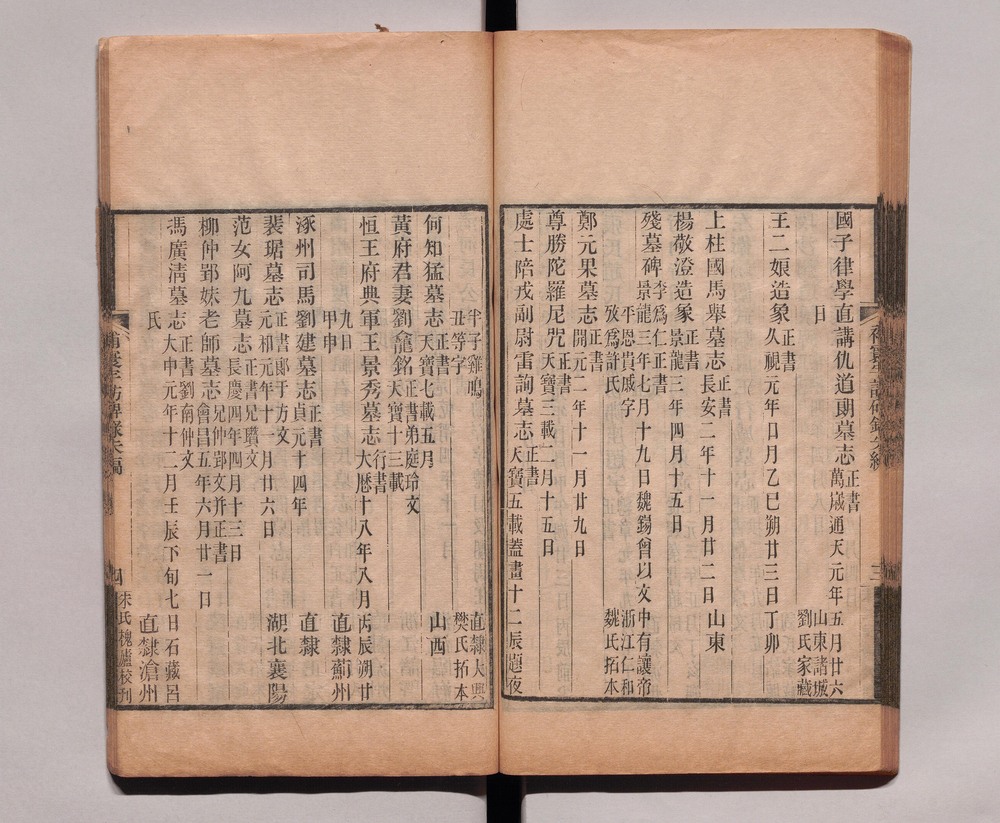 國子律學直講仇道朗墓志 正書 萬歲通天元年五月廿六日 山東諸城 劉氏家藏
王二娘造象 正書 久視元年日月乙巳朔廿三日丁卯
上柱國馬舉墓志 正書 長安二年十一月廿二日 山東
楊敬澄造象 正書 景龍三年四月十五日
殘墓碑 李爲仁正書 景龍三年七月十九日魏錫曾以文中有讓帝 平恩貴戚字 攷爲許氏 浙江仁和 魏氏拓本
鄭元果墓志 正書 開元二年十一月廿九日
尊勝陀羅尼咒 正書 天寶三載二月十五日
處士陪戎副尉雷詢墓志 正書 天寶五載蓋畫十二辰題夜
半子雞鳴 丑等字 直隸大興 樊氏拓本
何知猛墓志 正書 天寶七載五月 山西
黃府君妻劉龕銘 正書弟庭玲文 天寶十三載
恒王府典軍王景秀墓志 行書 大曆十八年八月丙辰朔廿
九日 甲申 直隸薊州
涿州司馬劉建墓志 正書 貞元十四年 直隸
裴琚墓志 正書郎于方文 元和元年十一月廿六日 湖北襄陽
范女阿九墓志 正書兄瓚文 長慶四年四月十三日
柳仲郢妹老師墓志 兄仲郢文并正書 會昌五年六月廿一日
馮廣淸墓志 正書劉南仲文 大中元年十二月壬辰下旬七日石藏呂
氏 直隸滄州
四
朱氏槐廬校刊
三